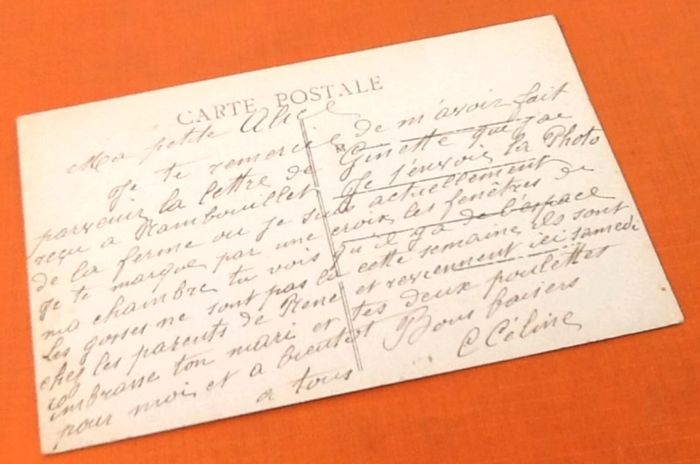 CARTE POSTALE
Ma petite Alice
Je te remercie de m'avoir fait
parvenir la lettre de Ginette que j'ai
reçu a Rambouillet Je t'envoie la Photo
de la ferme ou je suis actuellement
Je te marque par une croix les fenêtres de
ma chambre tu vois qu'il y a de l'espace
Les gosses ne sont pas là cette semaine ils sont
chez les parents de René et reviennent ici samedi
Embrasse ton mari et tes deux poulettes
pour moi et a bientot Bons baisers
a tous C Céline